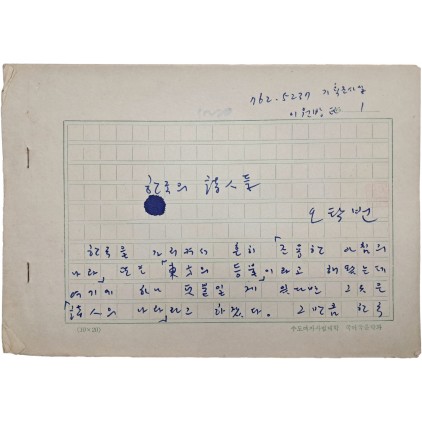 762-5227
이
1
한국의 詩人들
오탁번
한국을 가리켜서 흔히 「조용한 아침의
나라」 또는 「東方의 등불」이라고 해왔는데
여기에 하나 덧붙일 게 있다면 그것은
「詩人의 나라」라고 하겠다. 그만큼 한국
(10×20) 수도여자사범대학